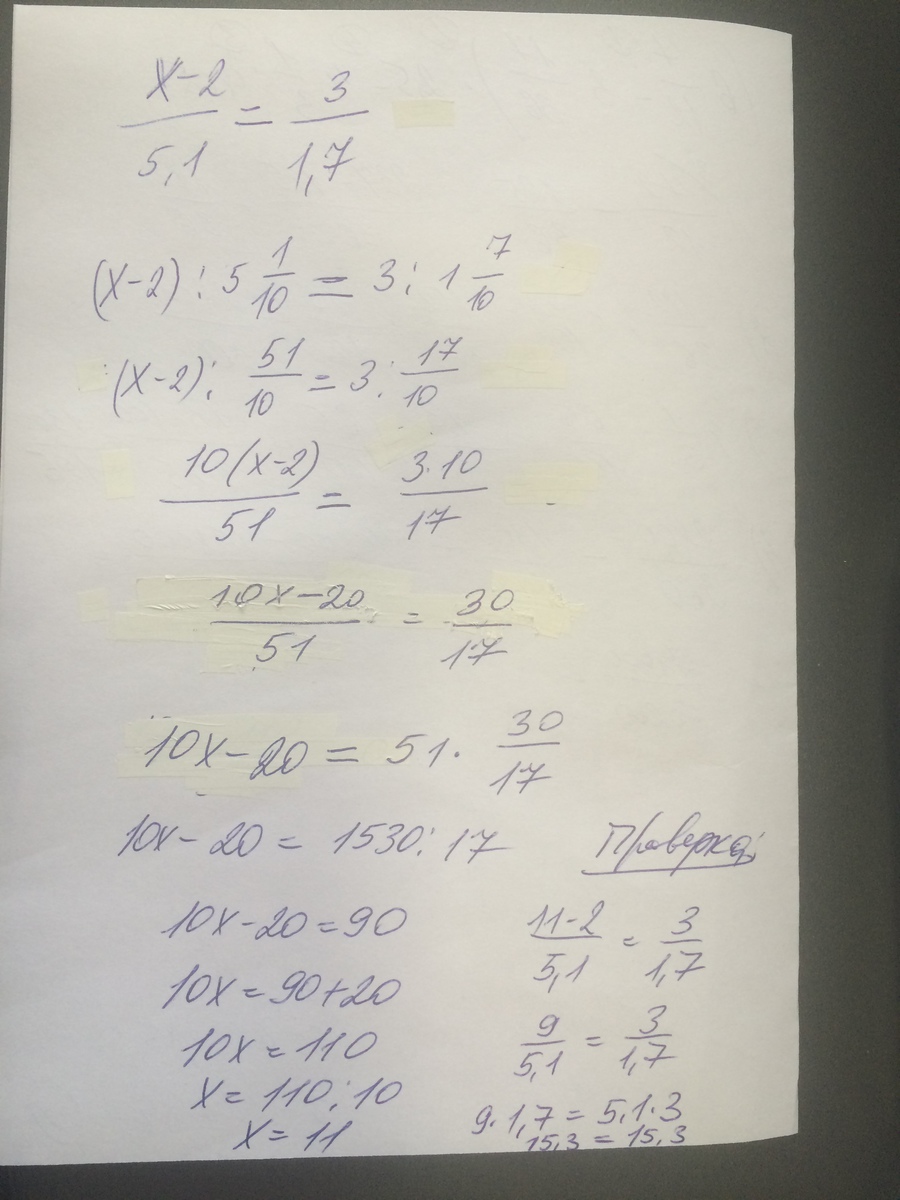 x-2/5,1 = 3/1,7
(x-2) : 5 1/10 = 3 : 1 7/10
(x-2) : 51/10 = 3 : 17/10
10(x-2)/51 = 3·10/17
10x-20/51 = 30/17
10x-20 = 51 · 30/17
10x-20 = 1530 : 17
10x-20 = 90
10x = 90+20
10x = 110
x = 110 : 10
x = 11
Проверка:
11-2/5,1 = 3/1,7
9/5,1 = 3/1,7
9·1,7 = 5,1·3
15,3 = 15,3